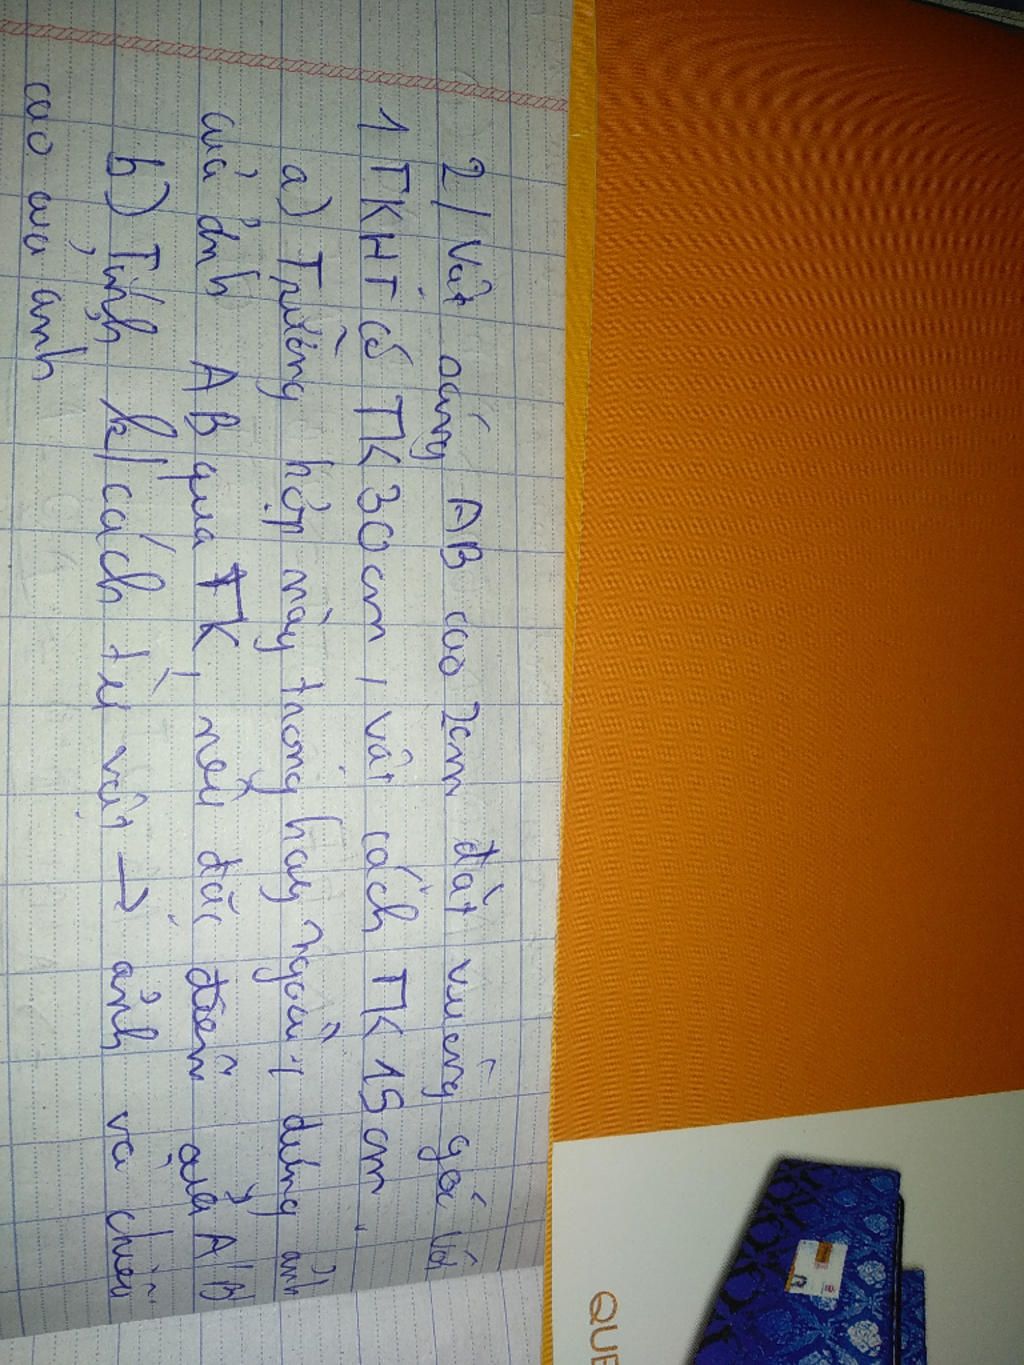 2/ Vật sáng AB cao 2cm đặt vuông góc với
1 TKHT có TK 30cm, vật cách TK 15cm.
a) Trường hợp này trong hay ngoài, dựng ảnh
của ảnh AB qua TK, nêu đặc điểm của A'B'
b) Tính k/cách từ vật → ảnh và chiều
cao của ảnh
QUE